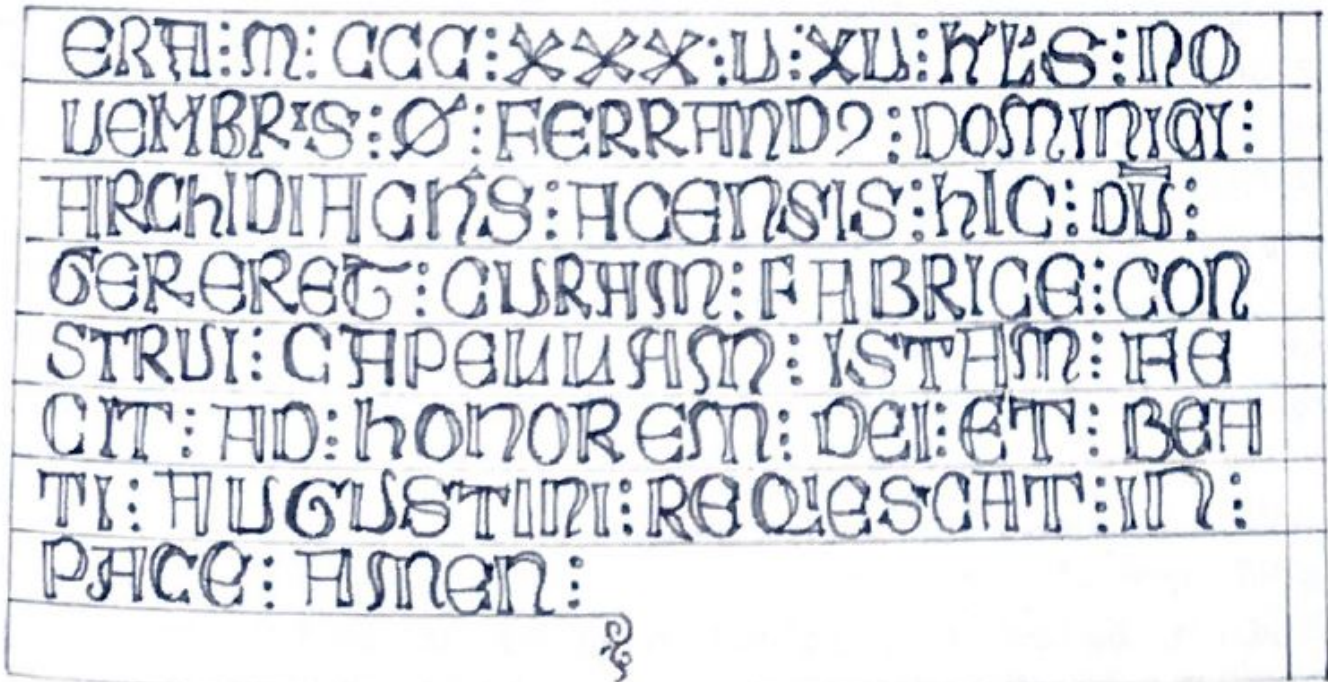 ERA : M : CCC : XXX : U : XU : K'L'S : NO
UEMBRIS : Ø : FERRANDꝰ : DOMINICI :
ARCHIDIACN'S : ACENSIS : HIC : DŪ :
GERERET : CURAM : FABRICE : CON
STRUI : CAPELLAM : ISTAM : FE
CIT : AD : HONOREM : DEI : ET : BEA
TI : AUGUSTINI : REQ'ESCAT : IN :
PACE : AMEN :